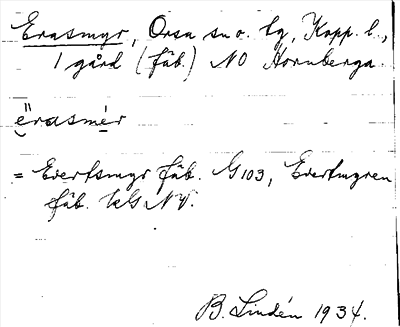 Erasmyr, Orsa sn o. tg, Kopp. l.,
1 gård (fäb.) NO Hornberga.
ërasmėr
= Evertsmyr fäb. G103, Evertmyren
fäb. kG NV.
B. Lindén 1934.